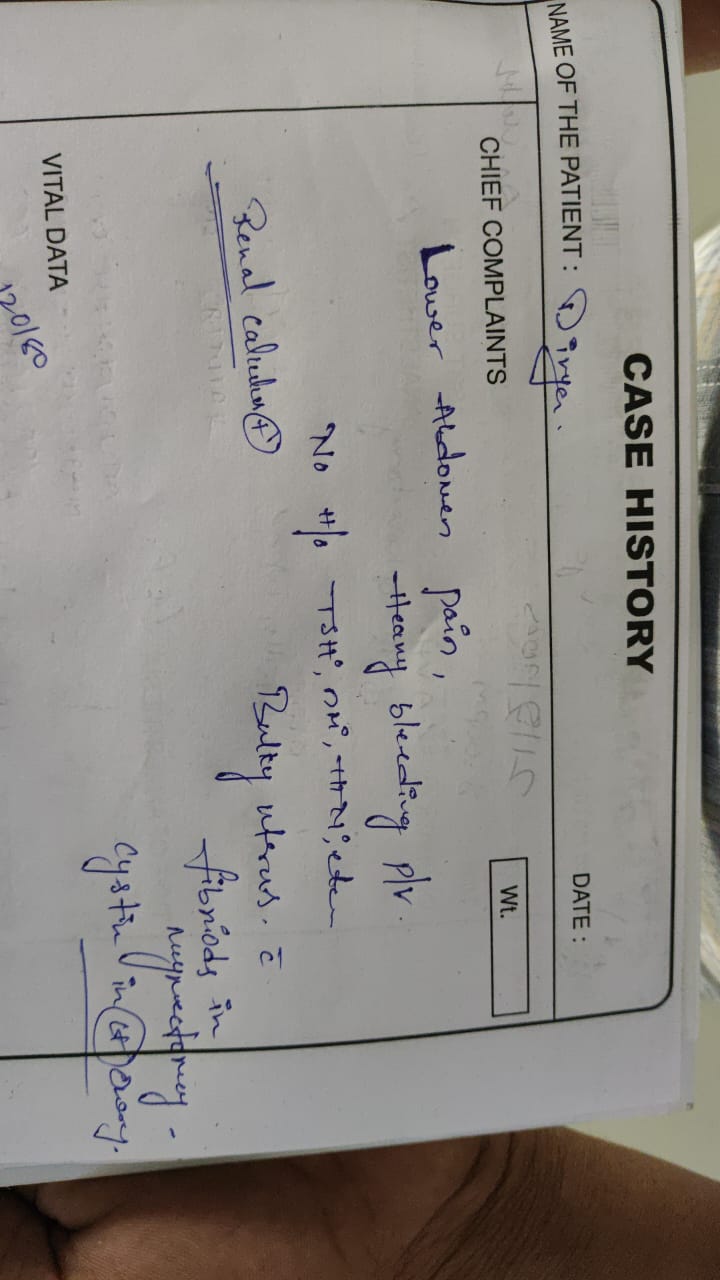 CASE HISTORY
NAME OF THE PATIENT : Divya.
DATE :
CHIEF COMPLAINTS
Wt.
Lower Abdomen pain,
Heavy bleeding P/V.
No H/o TSH, DM, HTN, etc
Renal calculus (+)
Bulky uterus. c̄
fibriods in
Cystic in ovary.
VITAL DATA
120/80